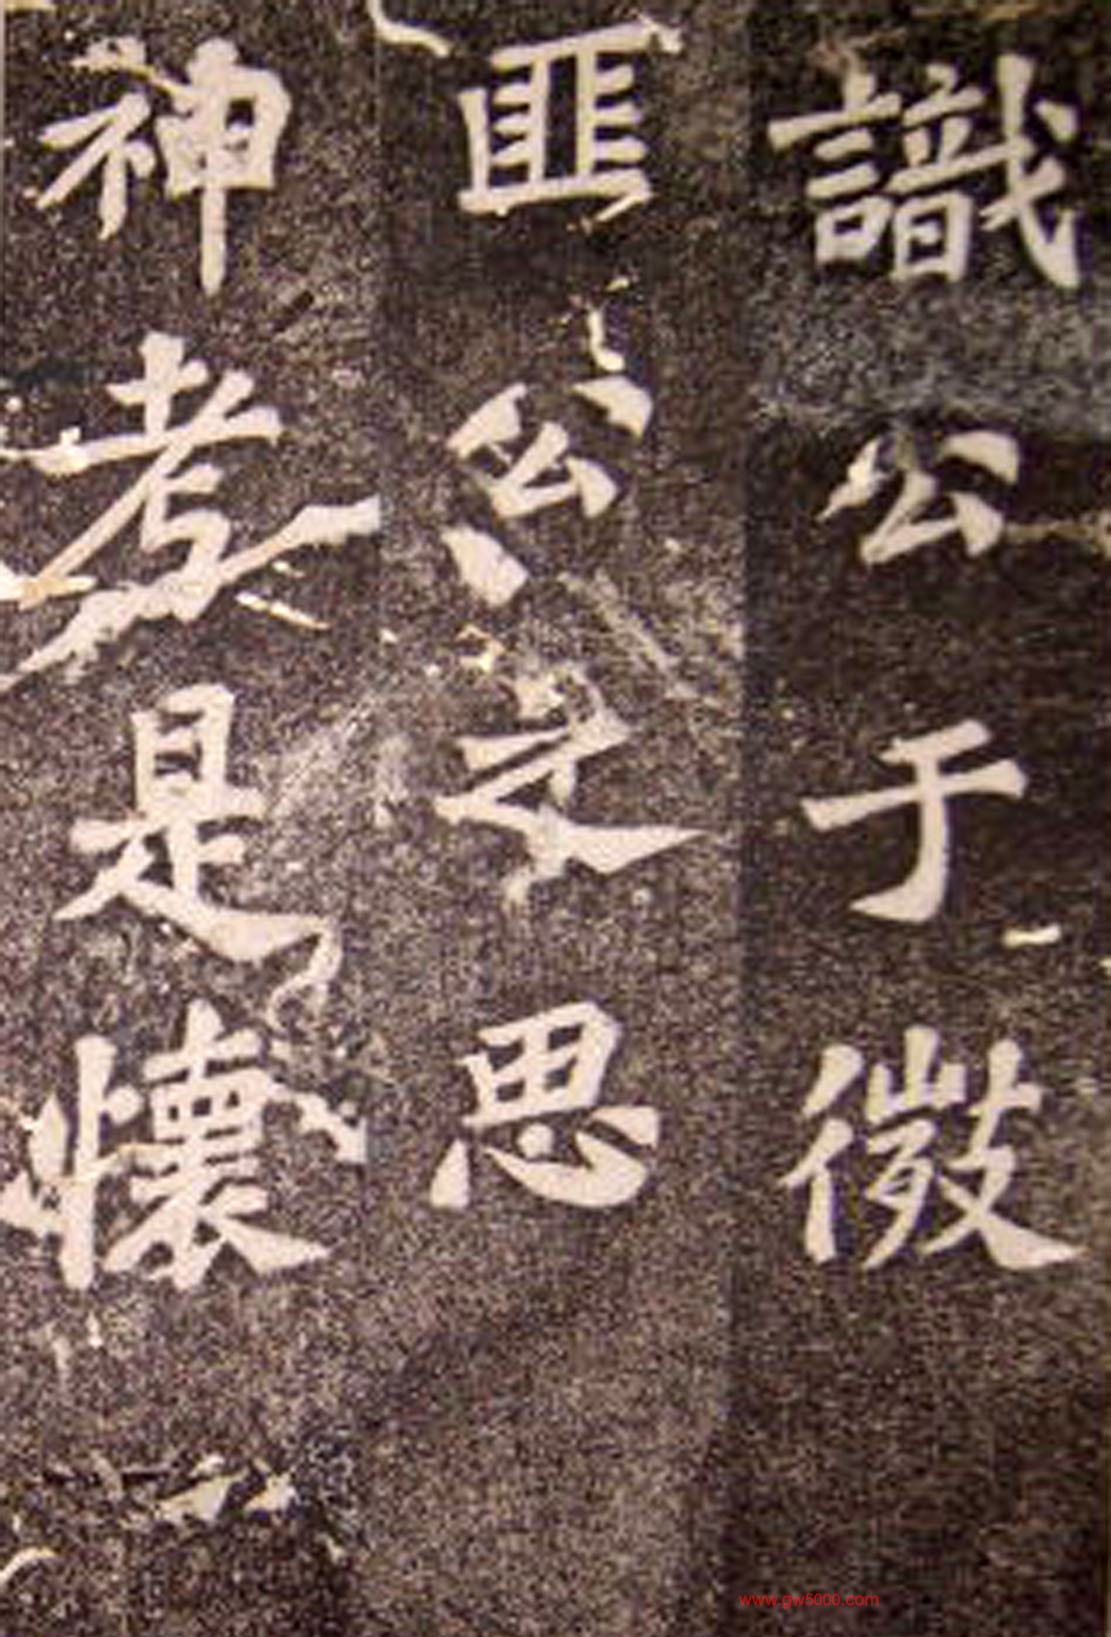 識公于微
匪公之思
神考是懷
www.gw5000.com